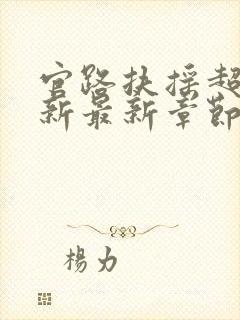 官路扶摇超
新最新章節
楊力